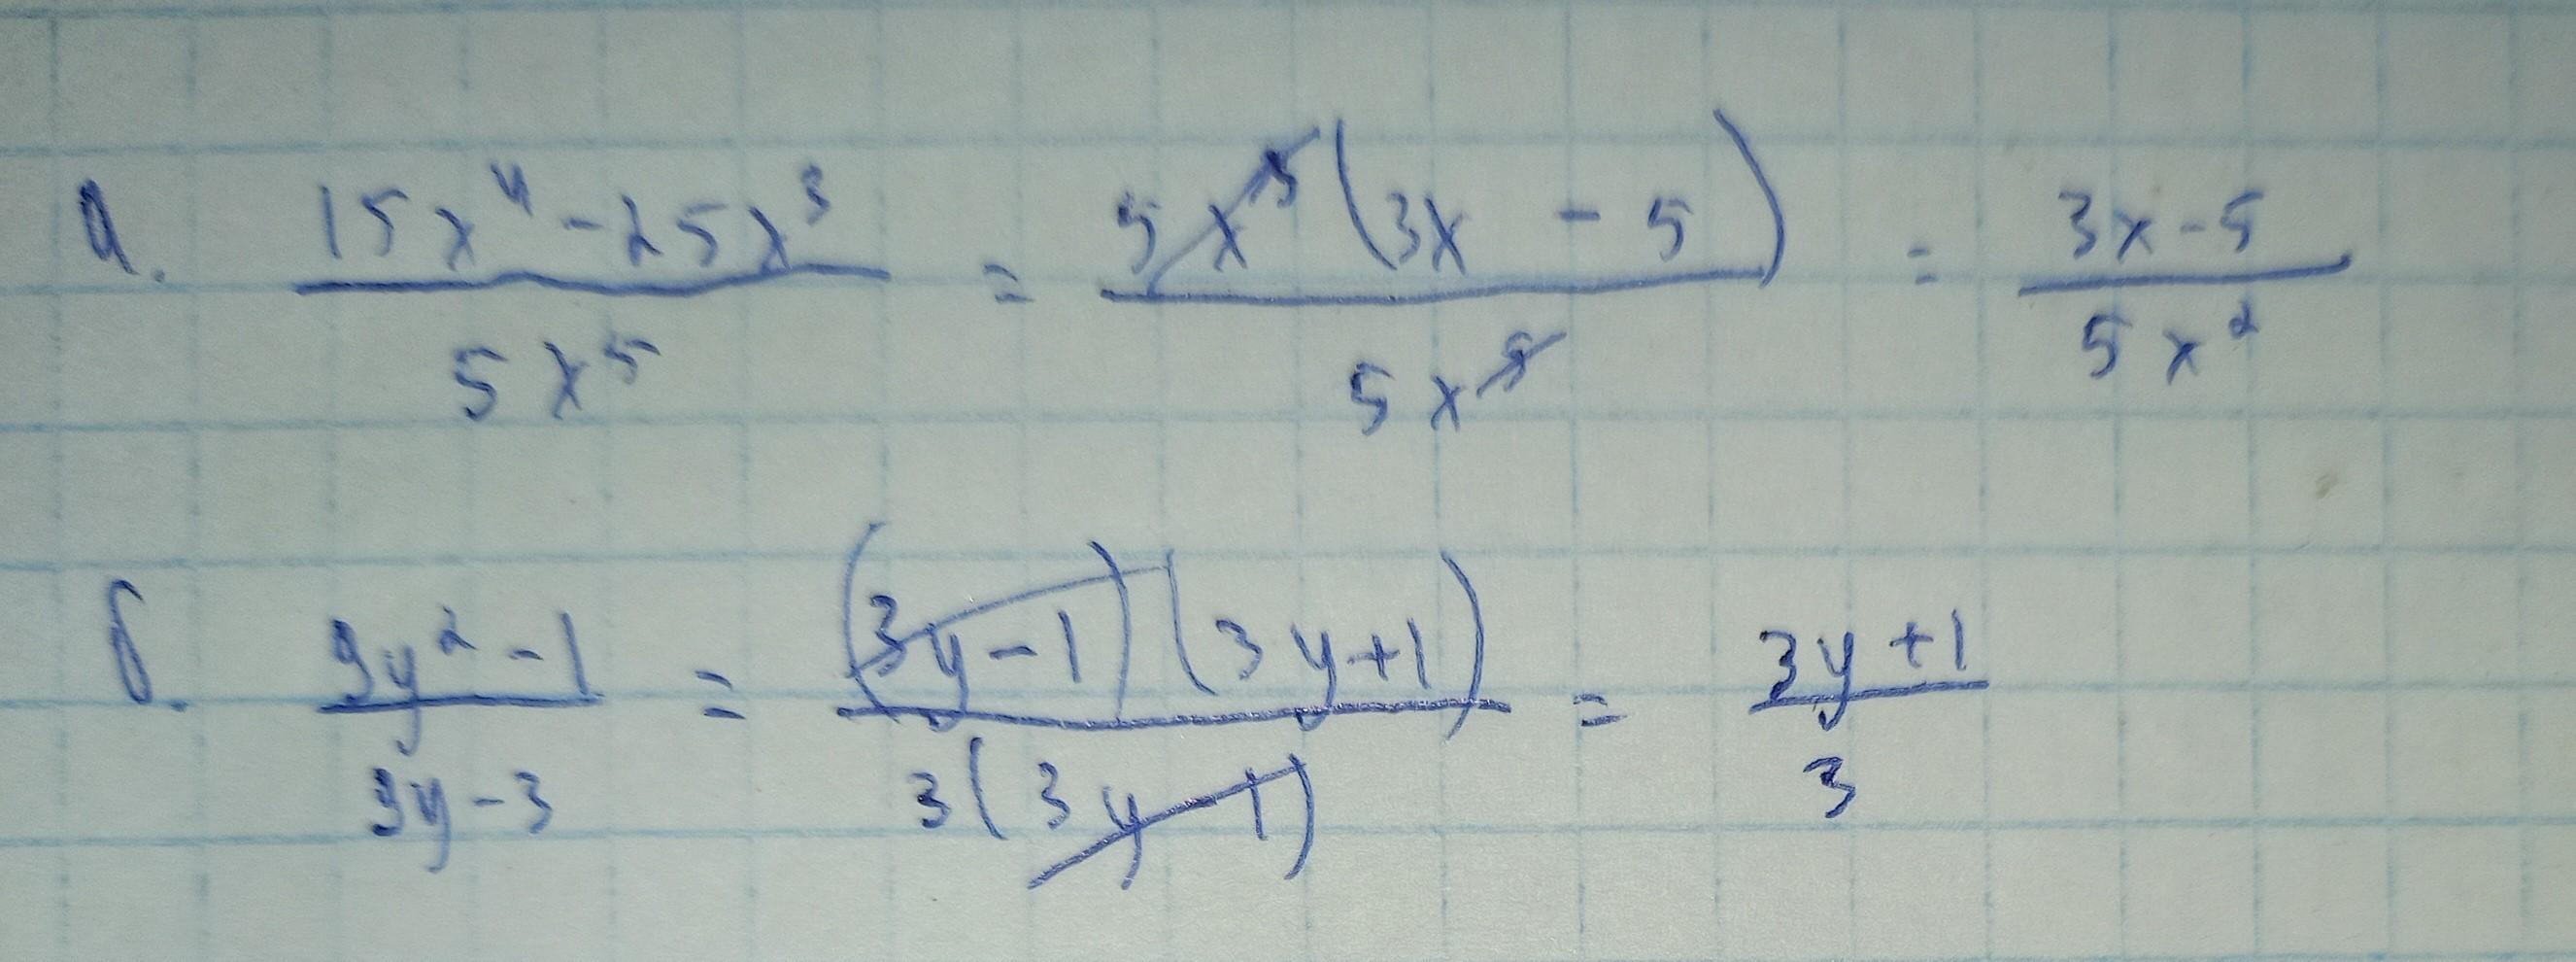 а. (15x⁴ - 25x³)/(5x⁵) = (5x³(3x - 5))/(5x⁵) = (3x - 5)/(5x²)
б. (9y² - 1)/(9y - 3) = ((3y - 1)(3y + 1))/(3(3y - 1)) = (3y + 1)/3